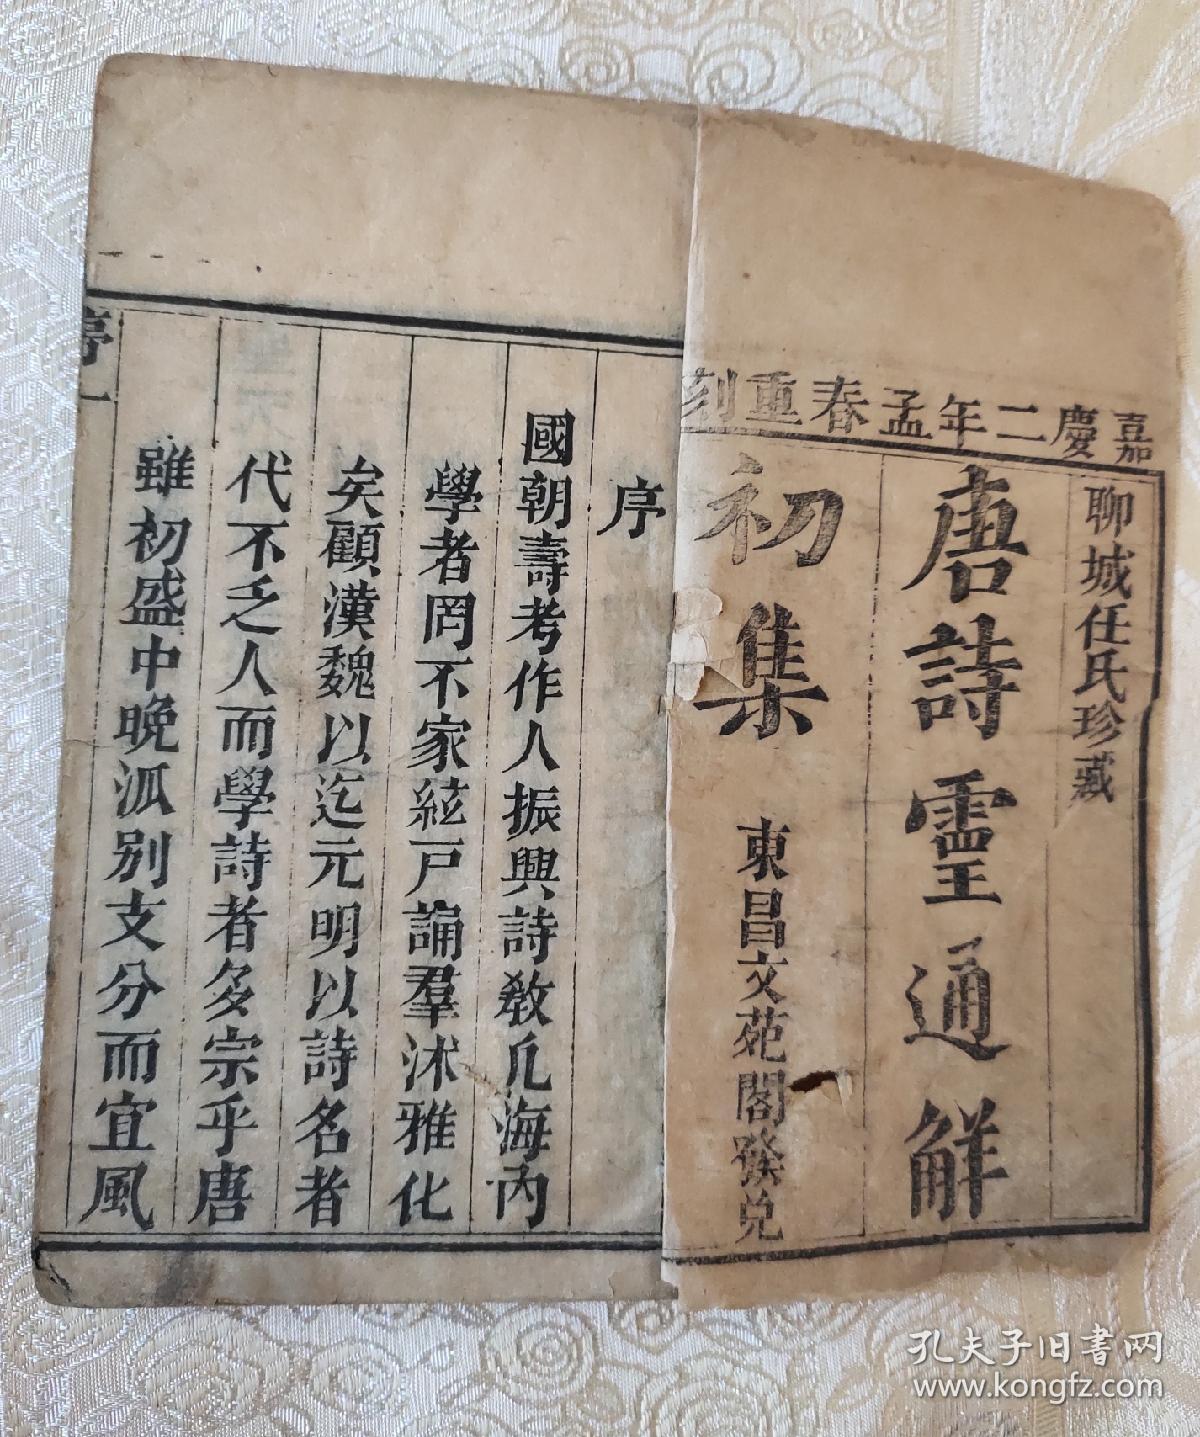 嘉慶二年孟春重刻
聊城任氏珍藏
唐詩靈通解
初集
東昌文苑閣發兌
序
國朝壽考作人振興詩教凡海內
學者罔不家絃戸誦羣沭雅化
矣顧漢魏以迄元明以詩名者
代不乏人而學詩者多宗乎唐
雖初盛中晚泒別支分而宜風
序
一
孔夫子旧书网
www.kongfz.com